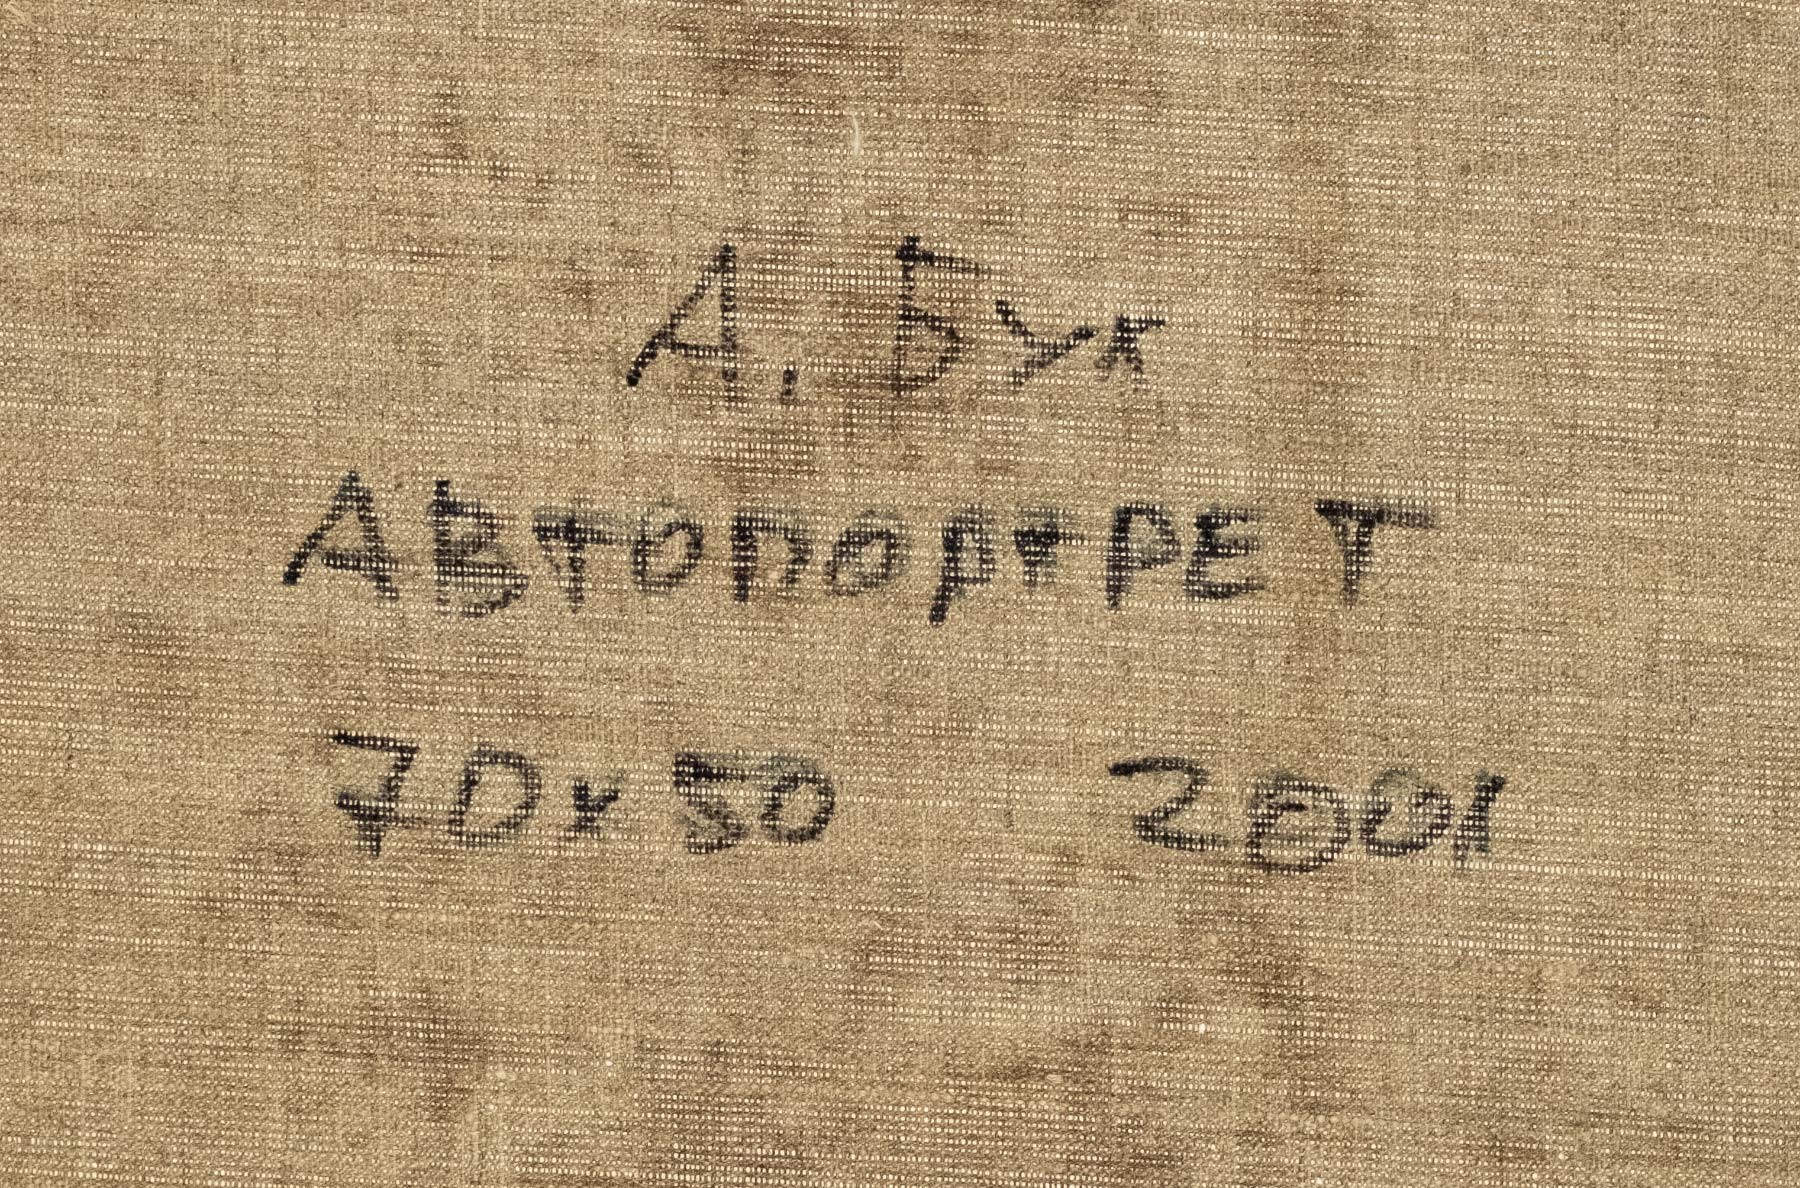 А. Бук
АВТОПОРТРЕТ
70x50 2001